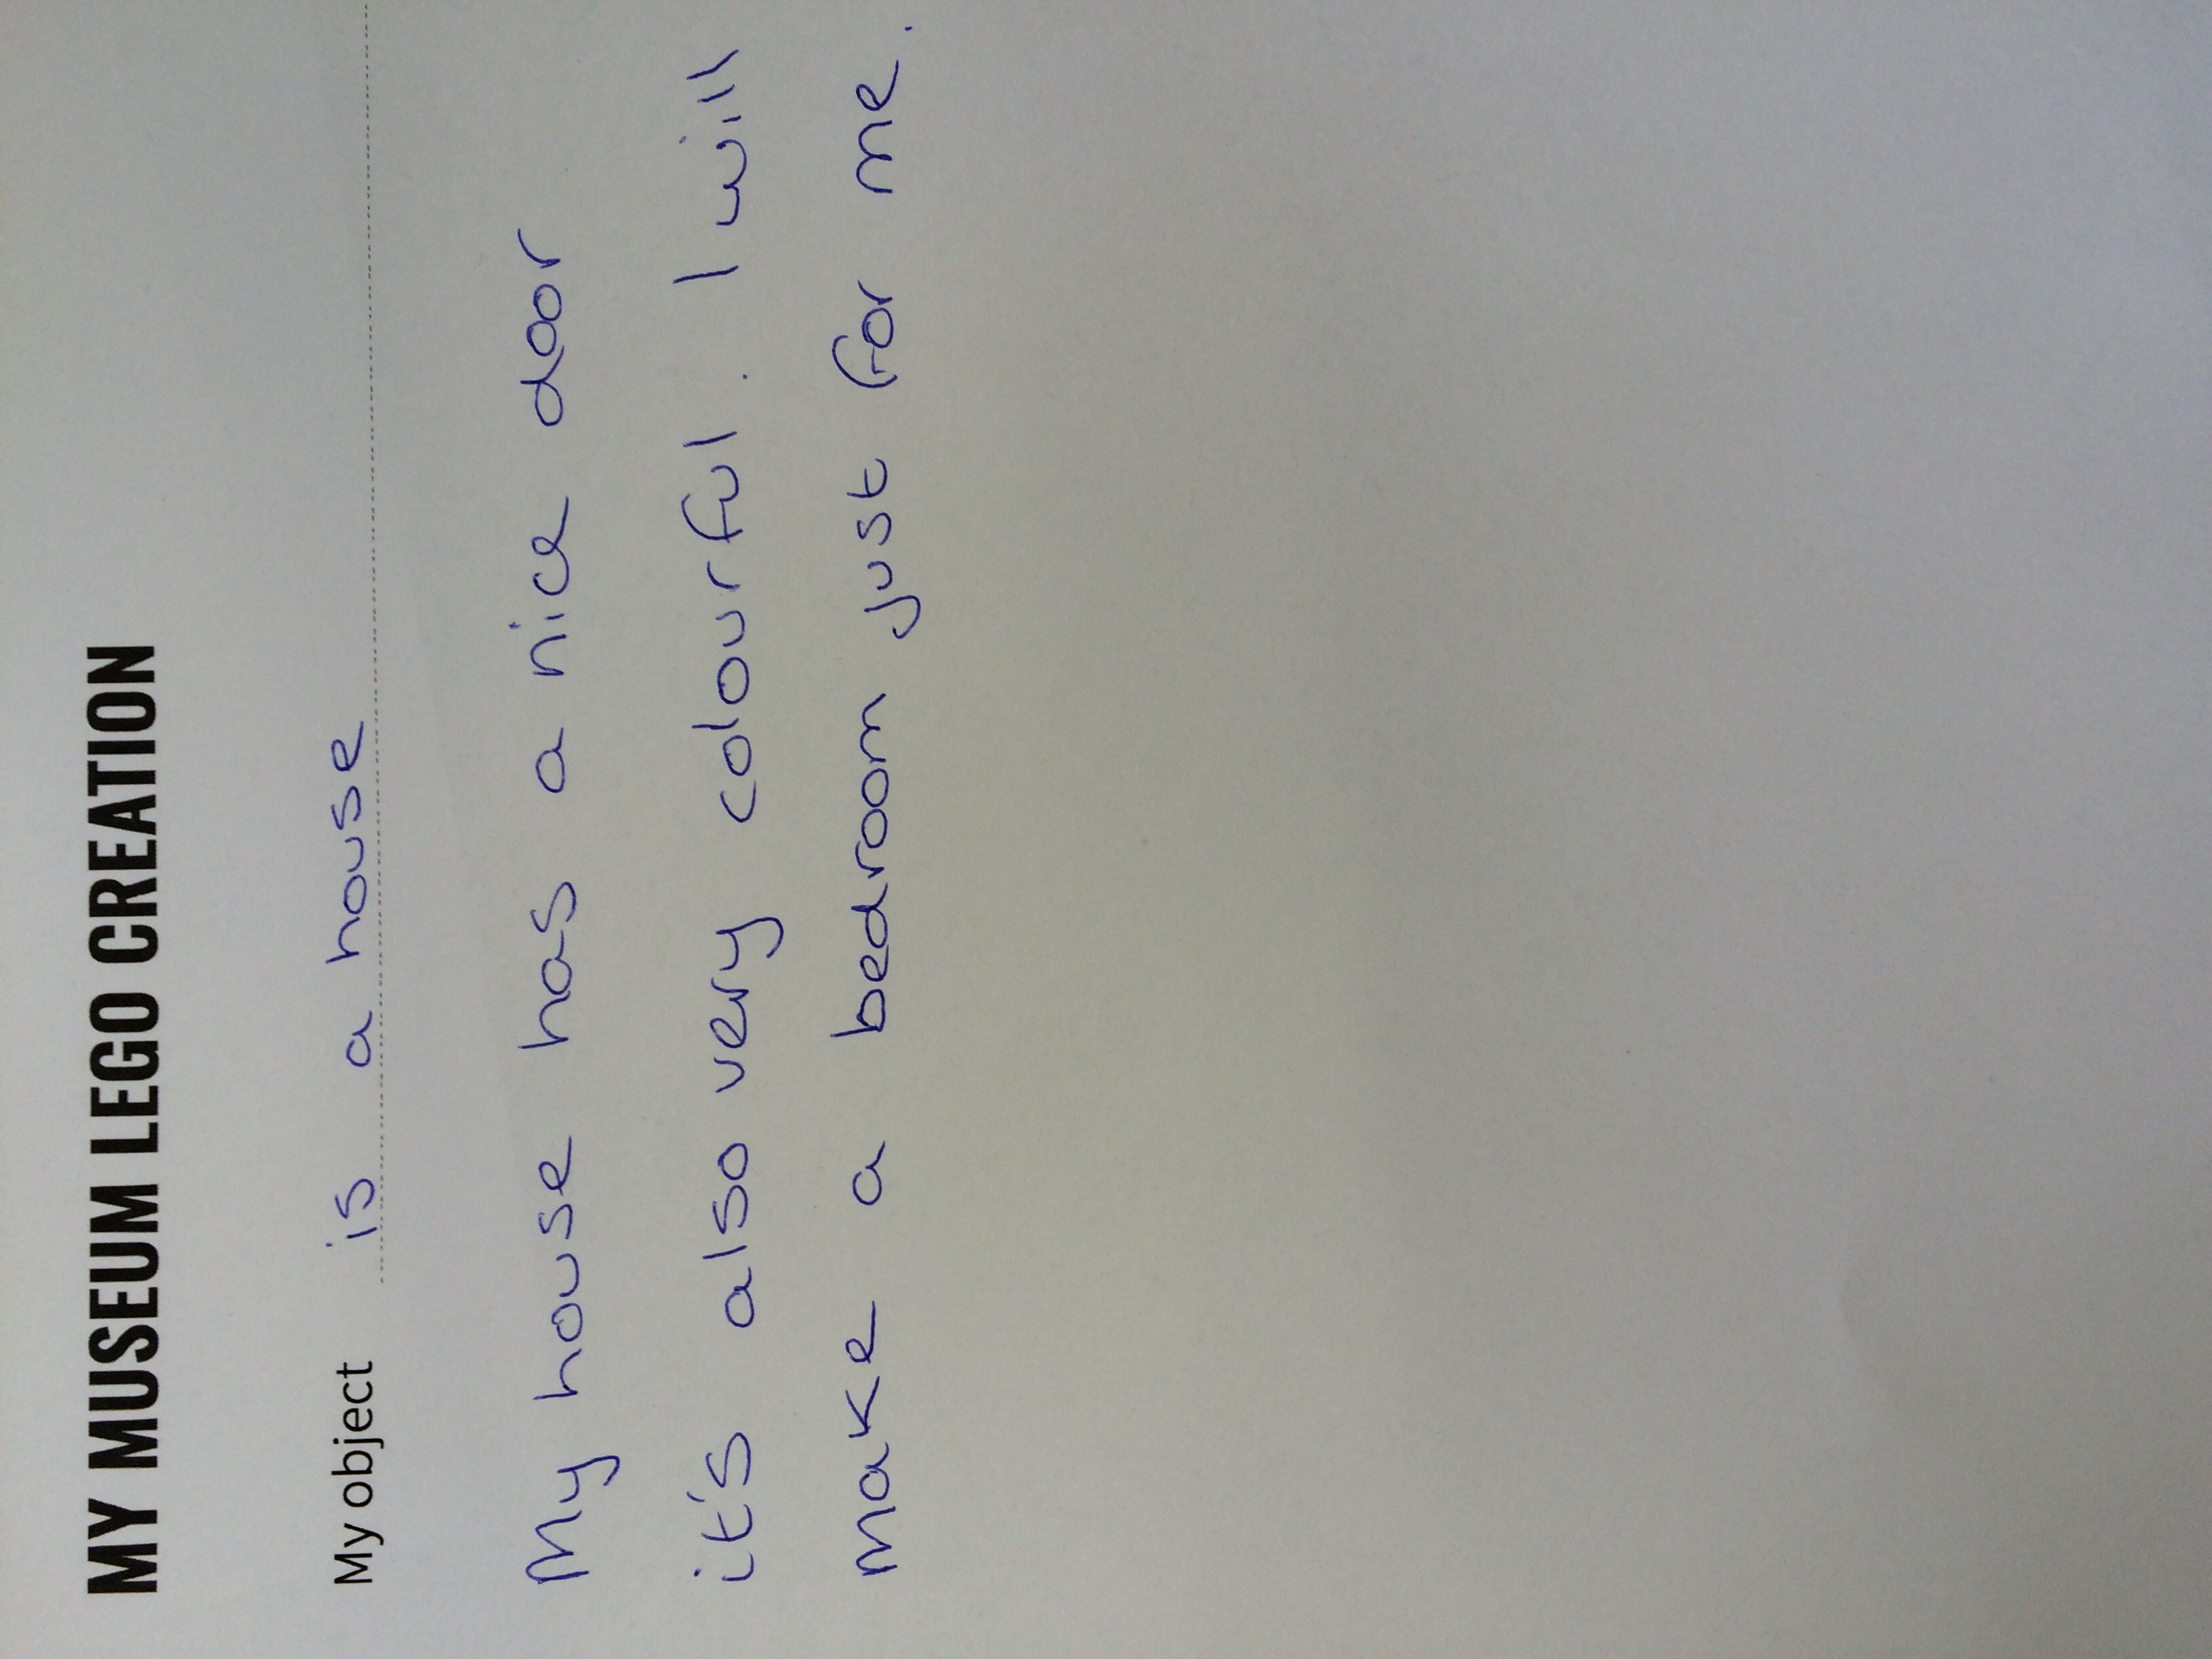 MY MUSEUM LEGO CREATION
My object is a house
My house has a nice door
it's also very colourful. I will
make a bedroom just for me.